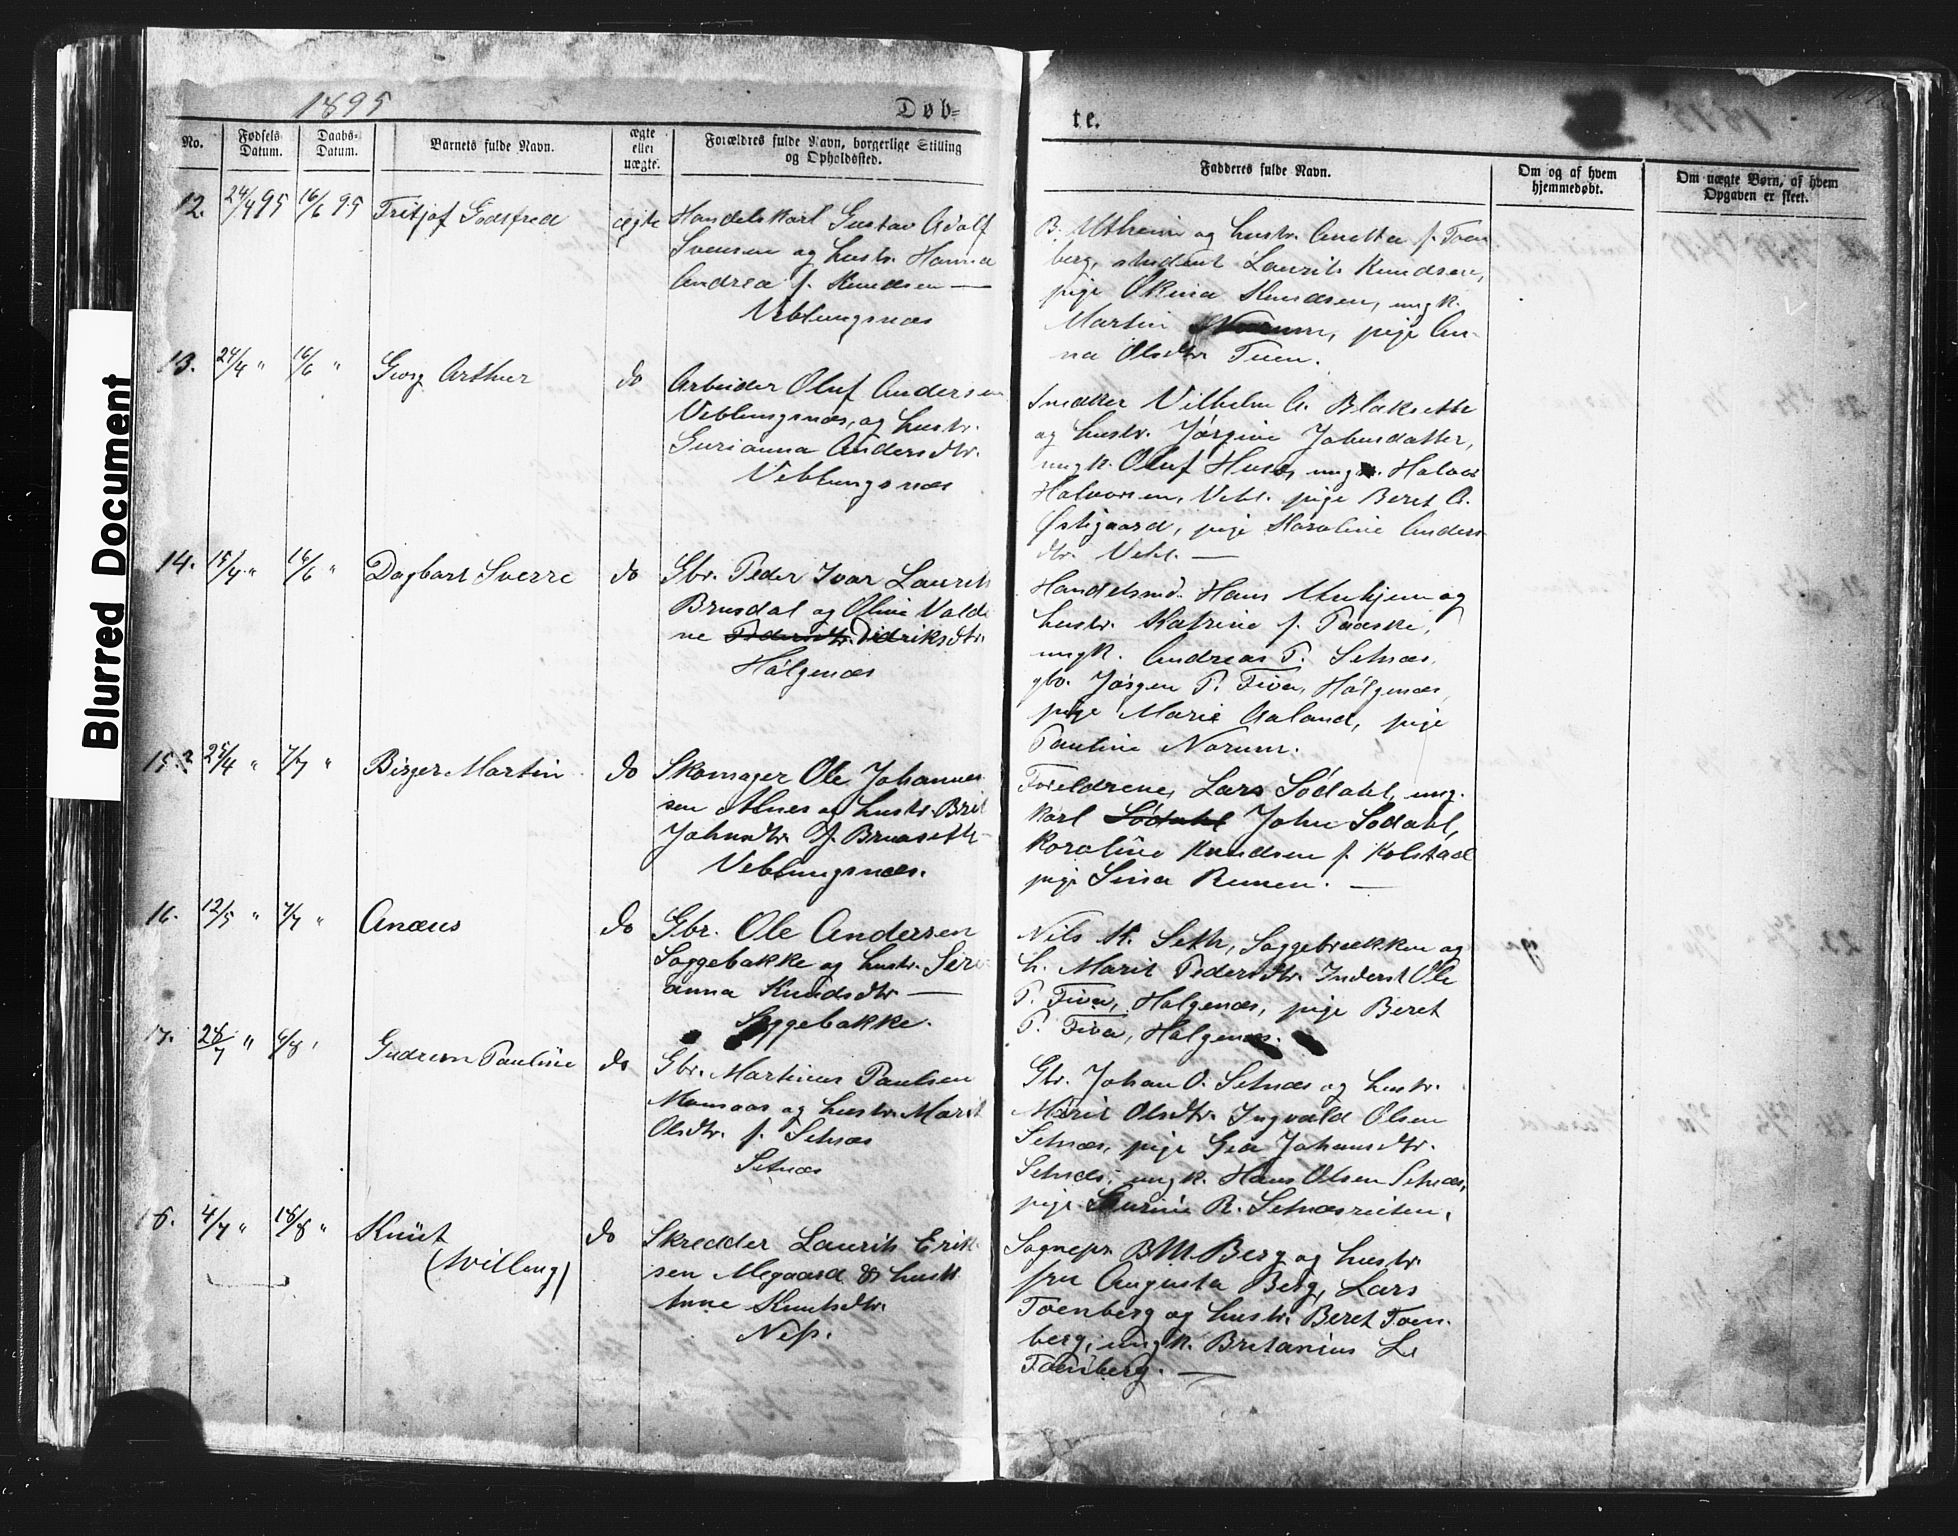 Blurred Document
1895
Døb-
te.
No.
Fødsels-
Datum.
Daabs-
Datum.
Barnets fulde Navn.
ægte
eller
uægte.
Forældres fulde Navn, borgerlige Stilling
og Opholdssted.
Fadderes fulde Navn.
Om og af hvem
hjemmedøbt.
Om uægte Børn, af hvem
Opgaven er skeet.
12. 24/4 95 16/6 95 Fritjof Godtfred ægte
Handelskarl Gustav Adolf
Svensen og hustr. Hanna
Andrea f. Knudsen —
Veblungsnæs
og hustr. Anetta f. Toen
berg, student Laurits Knudsen,
pige Knudsen, ungk.
Martin Norum, pige An-
na Olsdtr.
13. 24/4 " 16/6 " Georg Arthur do
Arbeider Oluf Andersen
Veblungsnæs, og hustr.
Gurianna Andersdtr.
Veblungsnæs
Snedker Vilhelm A. Blaksetth
og hustr. Jørgine Johnsdatter,
ungk. Oluf ungk. Halvor
Halvorsen, Vebl. pige Beret A.
Østigaard, pige Karoline Anders
dtr. Vebl. —
14. 15/4 " 16/6 " Dagbart Sverre do
Gbr. Peder Ivar Laurits
Brusdal og Oline Valde
ne Didriksdtr.
Hølgenæs
Handelsmd. Hans og
hustr. Katrine f. Paaske,
ungk. Andreas P. Setnæs,
gbr. Jørgen P. Fiva, Hølgenæs,
pige Marie Aaland, pige
Pauline Norum.
15. 25/4 " 7/7 " Birger Martin do
Skomager Ole Johannes
sen og hustr. Brit
Johnsdtr. f. Bruaseth
Veblungsnæs.
Forældrene, Lars Sødahl, ung-
karl Sødahl John Sødahl,
Karoline Knudsen f. Kolstad
pige
16. 12/5 " 7/7 " Anæus do
Gbr. Ole Andersen
Soggebakke og hustr. Seri-
anna Knudsdtr —
Soggebakke.
Nils M. Seth, Soggebækken og
h. Marit Pedersdtr. Inderst Ole
P. Fiva, Holgenæs, pige Beret
P. Fiva, Holgenæs.
17. 28/7 " Gudrun Pauline do
Gbr. Martinus Paulsen
Monsaas og hustr. Marit
Olsdtr. f. Setnæs
Setnæs
Gbr. Johan O. Setnæs og hustr.
Marit Olsdtr. Ingvald Olsen
Setnæs, pige Gea Johansdtr.
Setnæs, ungk. Hans Olsen Setnæs,
pige R.
18. 4/7 " 18/8 " Knut do
(tvilling)
Skredder Laurits Erik
sen og hustr
Anne Knutsdtr.
Sognepr. B. M. Berg og hustr
fru Augusta Berg, Lars
Toenberg og hustr. Beret Toen-
berg, ungk. Britanius L.
Toenberg. —